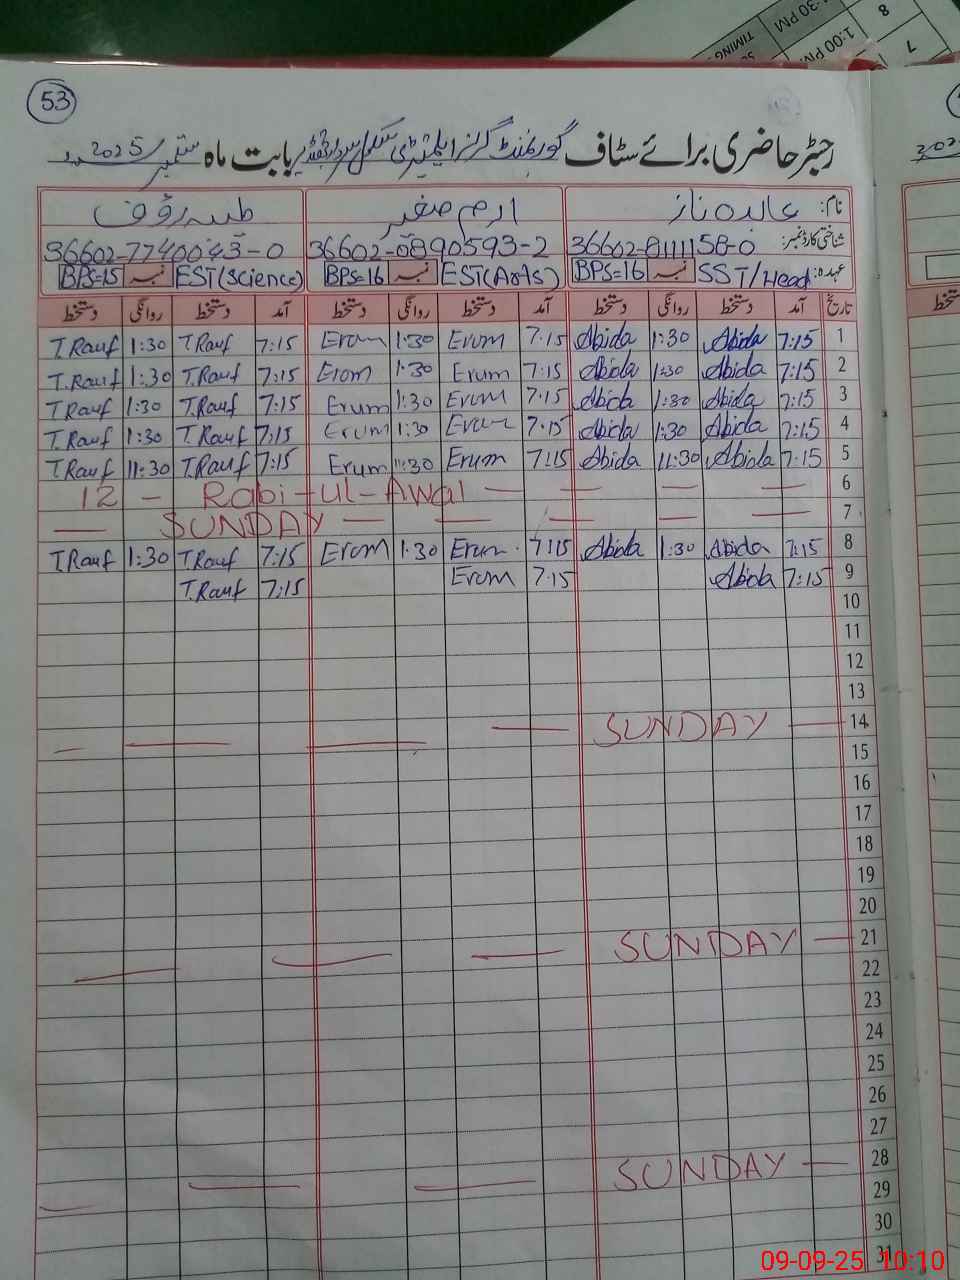 :30 PM
8
1:00 PM
7
TIMING
53
رجسٹر حاضری برائے سٹاف گورنمنٹ گرلز ایلیمنٹری سکول بابت ماہ ستمبر 2025
نام: عابدہ ناز ارم صغیر طیبہ رؤف
شناختی کارڈ نمبر: 36602-8111158-0 36602-0890593-2 36602-7740043-0
عہدہ: SST/Head BPS-16 EST(Arts) BPS-16 EST(Science) BPS-15
تاریخ آمد دستخط روانگی دستخط آمد دستخط روانگی دستخط آمد دستخط روانگی دستخط
1 7:15 Abida 1:30 Abida 7:15 Erum 1:30 Erum 7:15 T.Rauf 1:30 T.Rauf
2 7:15 Abida 1:30 Abida 7:15 Erum 1:30 Erum 7:15 T.Rauf 1:30 T.Rauf
3 7:15 Abida 1:30 Abida 7:15 Erum 1:30 Erum 7:15 T.Rauf 1:30 T.Rauf
4 7:15 Abida 1:30 Abida 7:15 Erum 1:30 Erum 7:15 T.Rauf 1:30 T.Rauf
5 7:15 Abida 11:30 Abida 7:15 Erum 11:30 Erum 7:15 T.Rauf 11:30 T.Rauf
12 - Rabi-ul-Awal — — — — 6
— SUNDAY — — — — — 7
8 7:15 Abida 1:30 Abida 7:15 Erum 1:30 Erum 7:15 T.Rauf 1:30 T.Rauf
9 7:15 Abida 7:15 Erum 7:15 T.Rauf
10
11
12
13
— — — — SUNDAY — 14
15
16
17
18
19
20
— — — SUNDAY — 21
22
23
24
25
26
27
— — — SUNDAY — 28
29
30
31
09-09-25 10:10